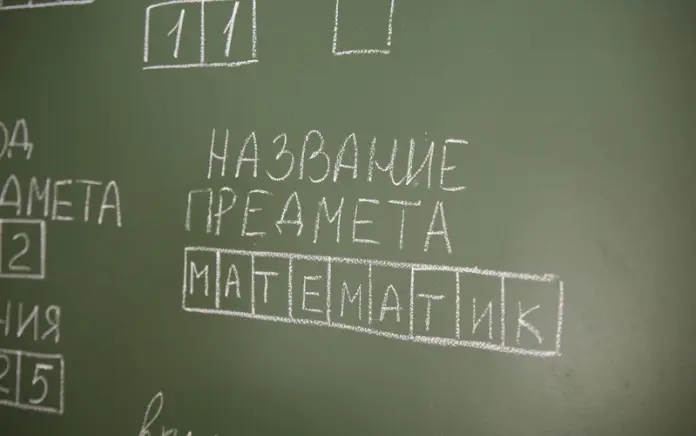 11
НАЗВАНИЕ
ПРЕДМЕТА
МАТЕМАТИК
ОД
ДМЕТА
2
НИЯ
25